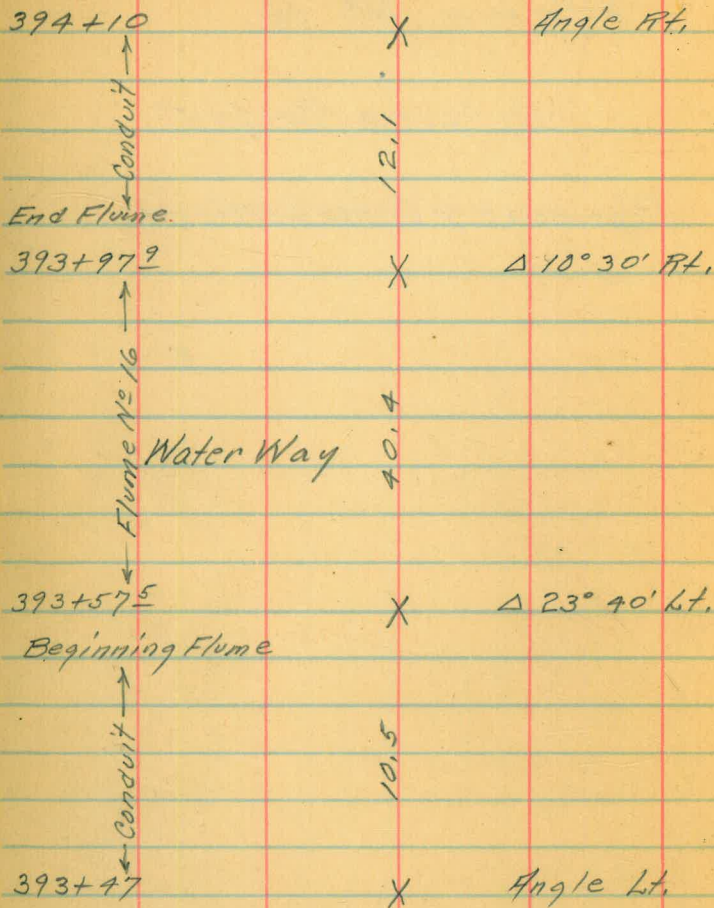 394+10 Angle Rt.
←Conduit→
12.1
End Flume.
393+97 9 Δ 10° 30' Rt.
← Flume Nº 16 →
Water Way
40.4
393+57 5 Δ 23° 40' Lt.
Beginning Flume
←Conduit→
10.5
393+47 Angle Lt.